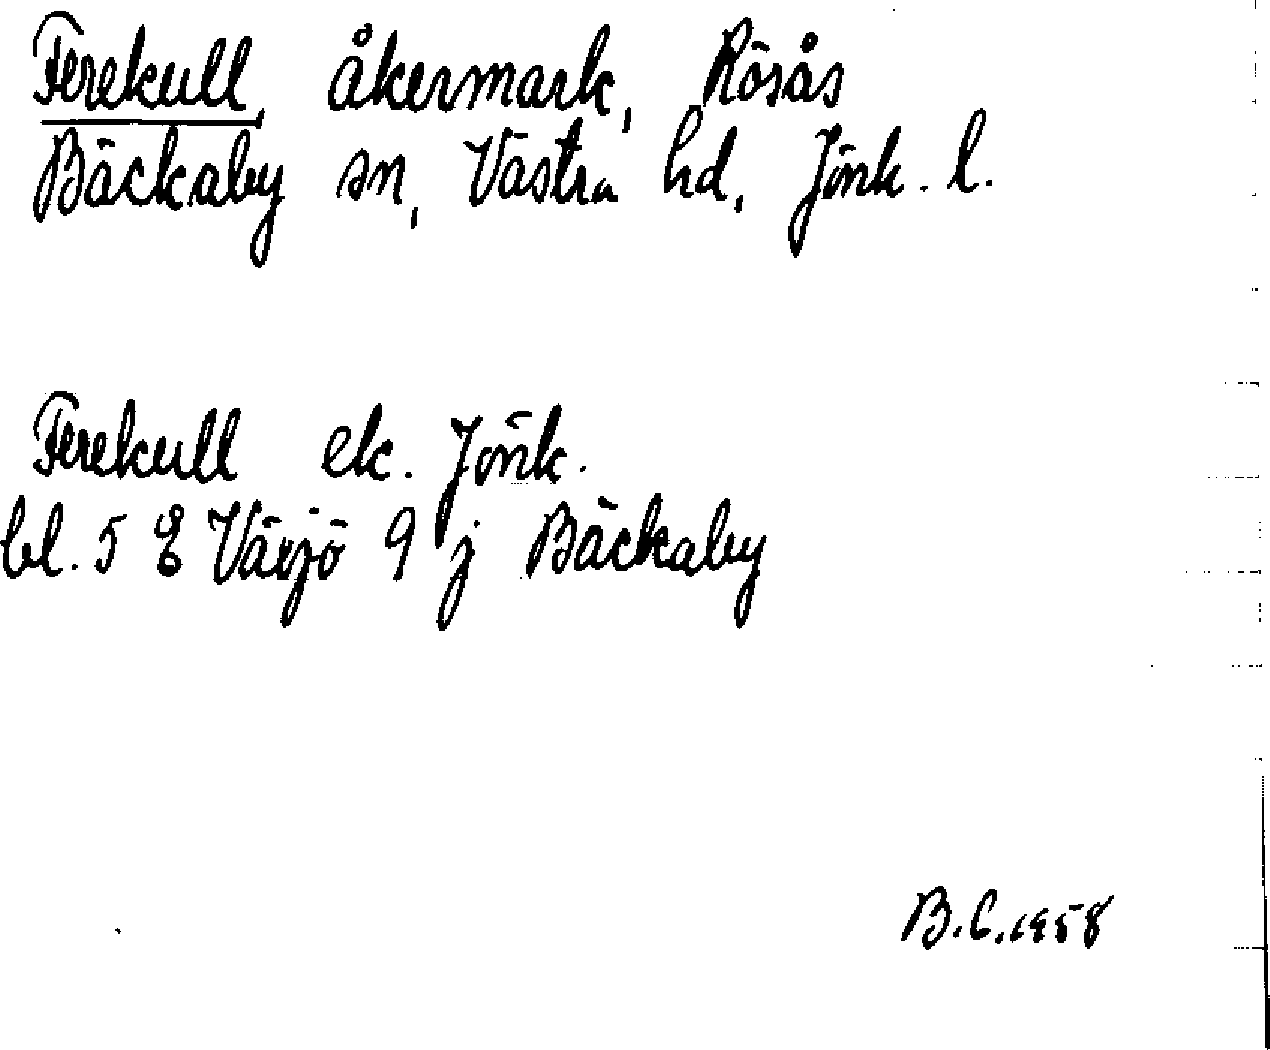 Ferekull, åkermark, Rösås
Bäckaby sn, Västra hd, Jönk. l.
Ferekull ek. Jönk.
bl. 5 E Växjö 9 j Bäckaby
B.C. 1958